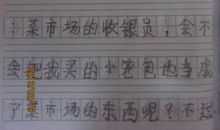 菜市场的收银员，会不
会把我买的小笼包也当成
了菜市场的东西呢？不过